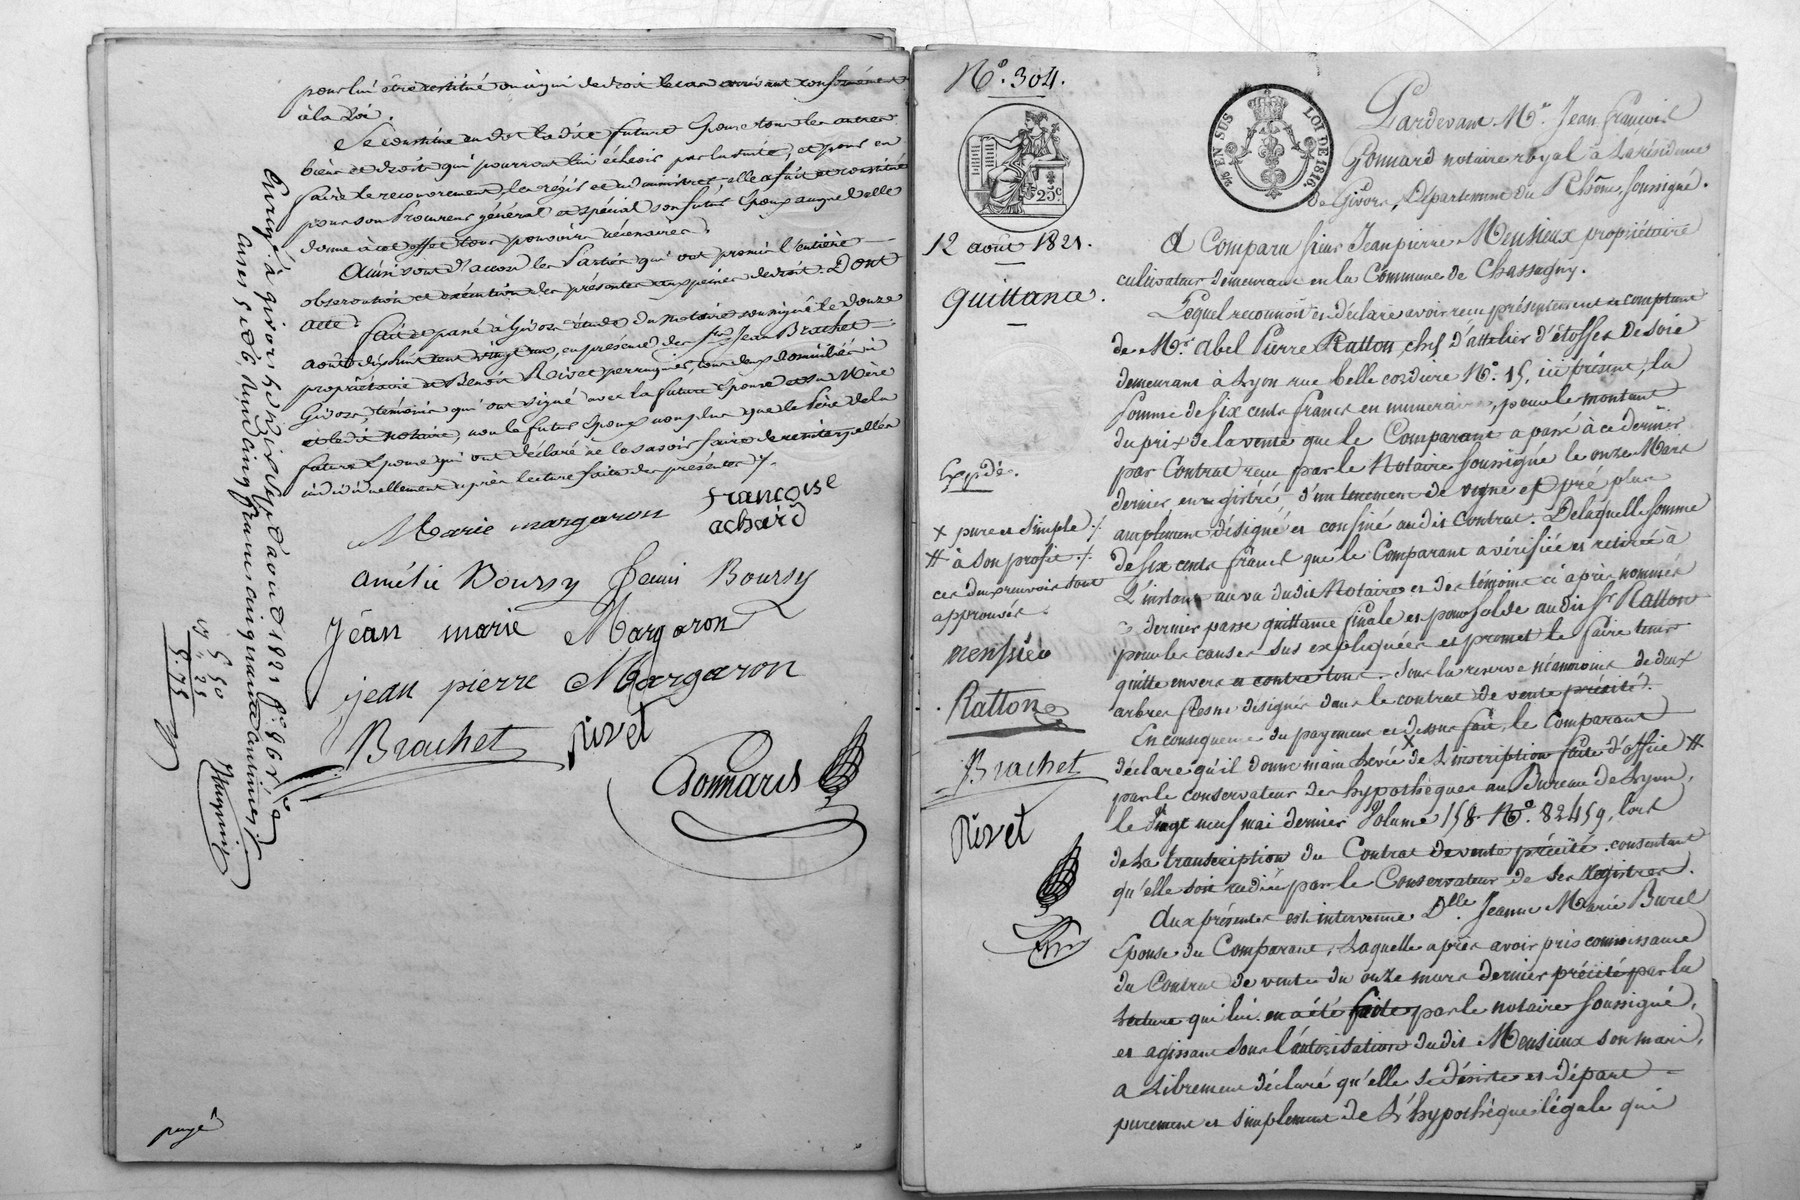 pour lui être restitué ou à qui de droit le cas arrivant conformément
à la Loi.
Se constitue en dot la dite future Epouse tous les autres
biens et droits qui pourront lui échoir par la suite, et pour en
faire le recouvrement, les régir et administrer elle a fait et constitué
pour son Procureur général et spécial son futur Epoux auquel elle
donne à cet effet tous pouvoirs nécessaires.
Ainsi sont d'accord les Parties qui ont promis l'entière
observation et exécution des présentes aux peines de droit. Dont
acte.
Fait et passé à Givors étude du Notaire soussigné le douze
août dix huit cent vingt un, en présence des Srs Jean Brachet
propriétaire et Benoit Rivet perruquier, tous deux domiciliés à
Givors, témoins qui ont signé avec la future Epouse et sa Mère
et ledit notaire, non le futur Epoux non plus que le Père de la
future Epouse qui ont déclaré ne le savoir faire de ce interpellés
individuellement après lecture faite des présentes /.
Marie margaron
françoise
achard
amélie Boursy
Boursy
jean marie Margaron
jean pierre Margaron
Brachet
Rivet
Gonnard
à givors le dix sept août 1821 f° 96
cases 5 et 6, reçu cinq francs cinquante centimes
5 50
55
payé
N° 304.
25c
12 août 1821.
Quittance.
Expdé.
x pure et simple /.
# à son profit /.
ces deux renvois sont
approuvés
mensieu
Ratton
Brachet
Rivet
EN SUS
LOI DE 1816.
Pardevant Me Jean François
Gonnard notaire royal à la résidence
de Givors, Département du Rhône, soussigné.
A Comparu sieur Jean pierre Mensieux propriétaire
cultivateur demeurant en la Commune de Chassagny.
Lequel reconnoit et déclare avoir reçu présentement et comptant
de Mr abel Pierre Ratton, chef d'attelier d'étoffes de soie
demeurant à Lyon rue belle cordière N° 15, ici présent, la
somme de six cents francs en numéraire, pour le montant
du prix de la vente que le Comparant a passé à ce dernier
par Contrat reçu par le Notaire soussigné le onze Mars
dernier, enregistré d'un tenement de vigne et pré plus
amplement désigné et confiné audit Contrat. De laquelle somme
de six cents francs que le Comparant a vérifiée et retirée à
l'instant au vu dudit Notaire et des témoins ci après nommés
ce dernier passe quittance finale et pour solde audit Sr Ratton
pour les causes sus expliquées et promet le faire tenir
quitte envers et contre tous. Sous la reserve néanmoins de deux
arbres fresne désignés dans le contrat de vente précité.
En conséquence du payement ci dessus fait, le Comparant
déclare qu'il donne main levée x de l'inscription faite d'office #
par le conservateur des hypothèques au Bureau de Lyon,
le vingt neuf mai dernier Volume 158 N° 82459, lors
de la transcription du Contrat de vente précité. consentant
qu'elle soit radiée par le Conservateur de ses registres.
Aux présentes est intervenue Dlle Jeanne Marie Burel
Epouse du Comparant, Laquelle après avoir pris connoissance
du Contrat de vente du onze mars dernier précité par la
lecture qui lui en a été faite par le notaire soussigné,
et agissant sous l'autorisation dudit Mensieux son mari,
a librement déclaré qu'elle se désiste et départ
purement et simplement de l'hypothèque légale qui